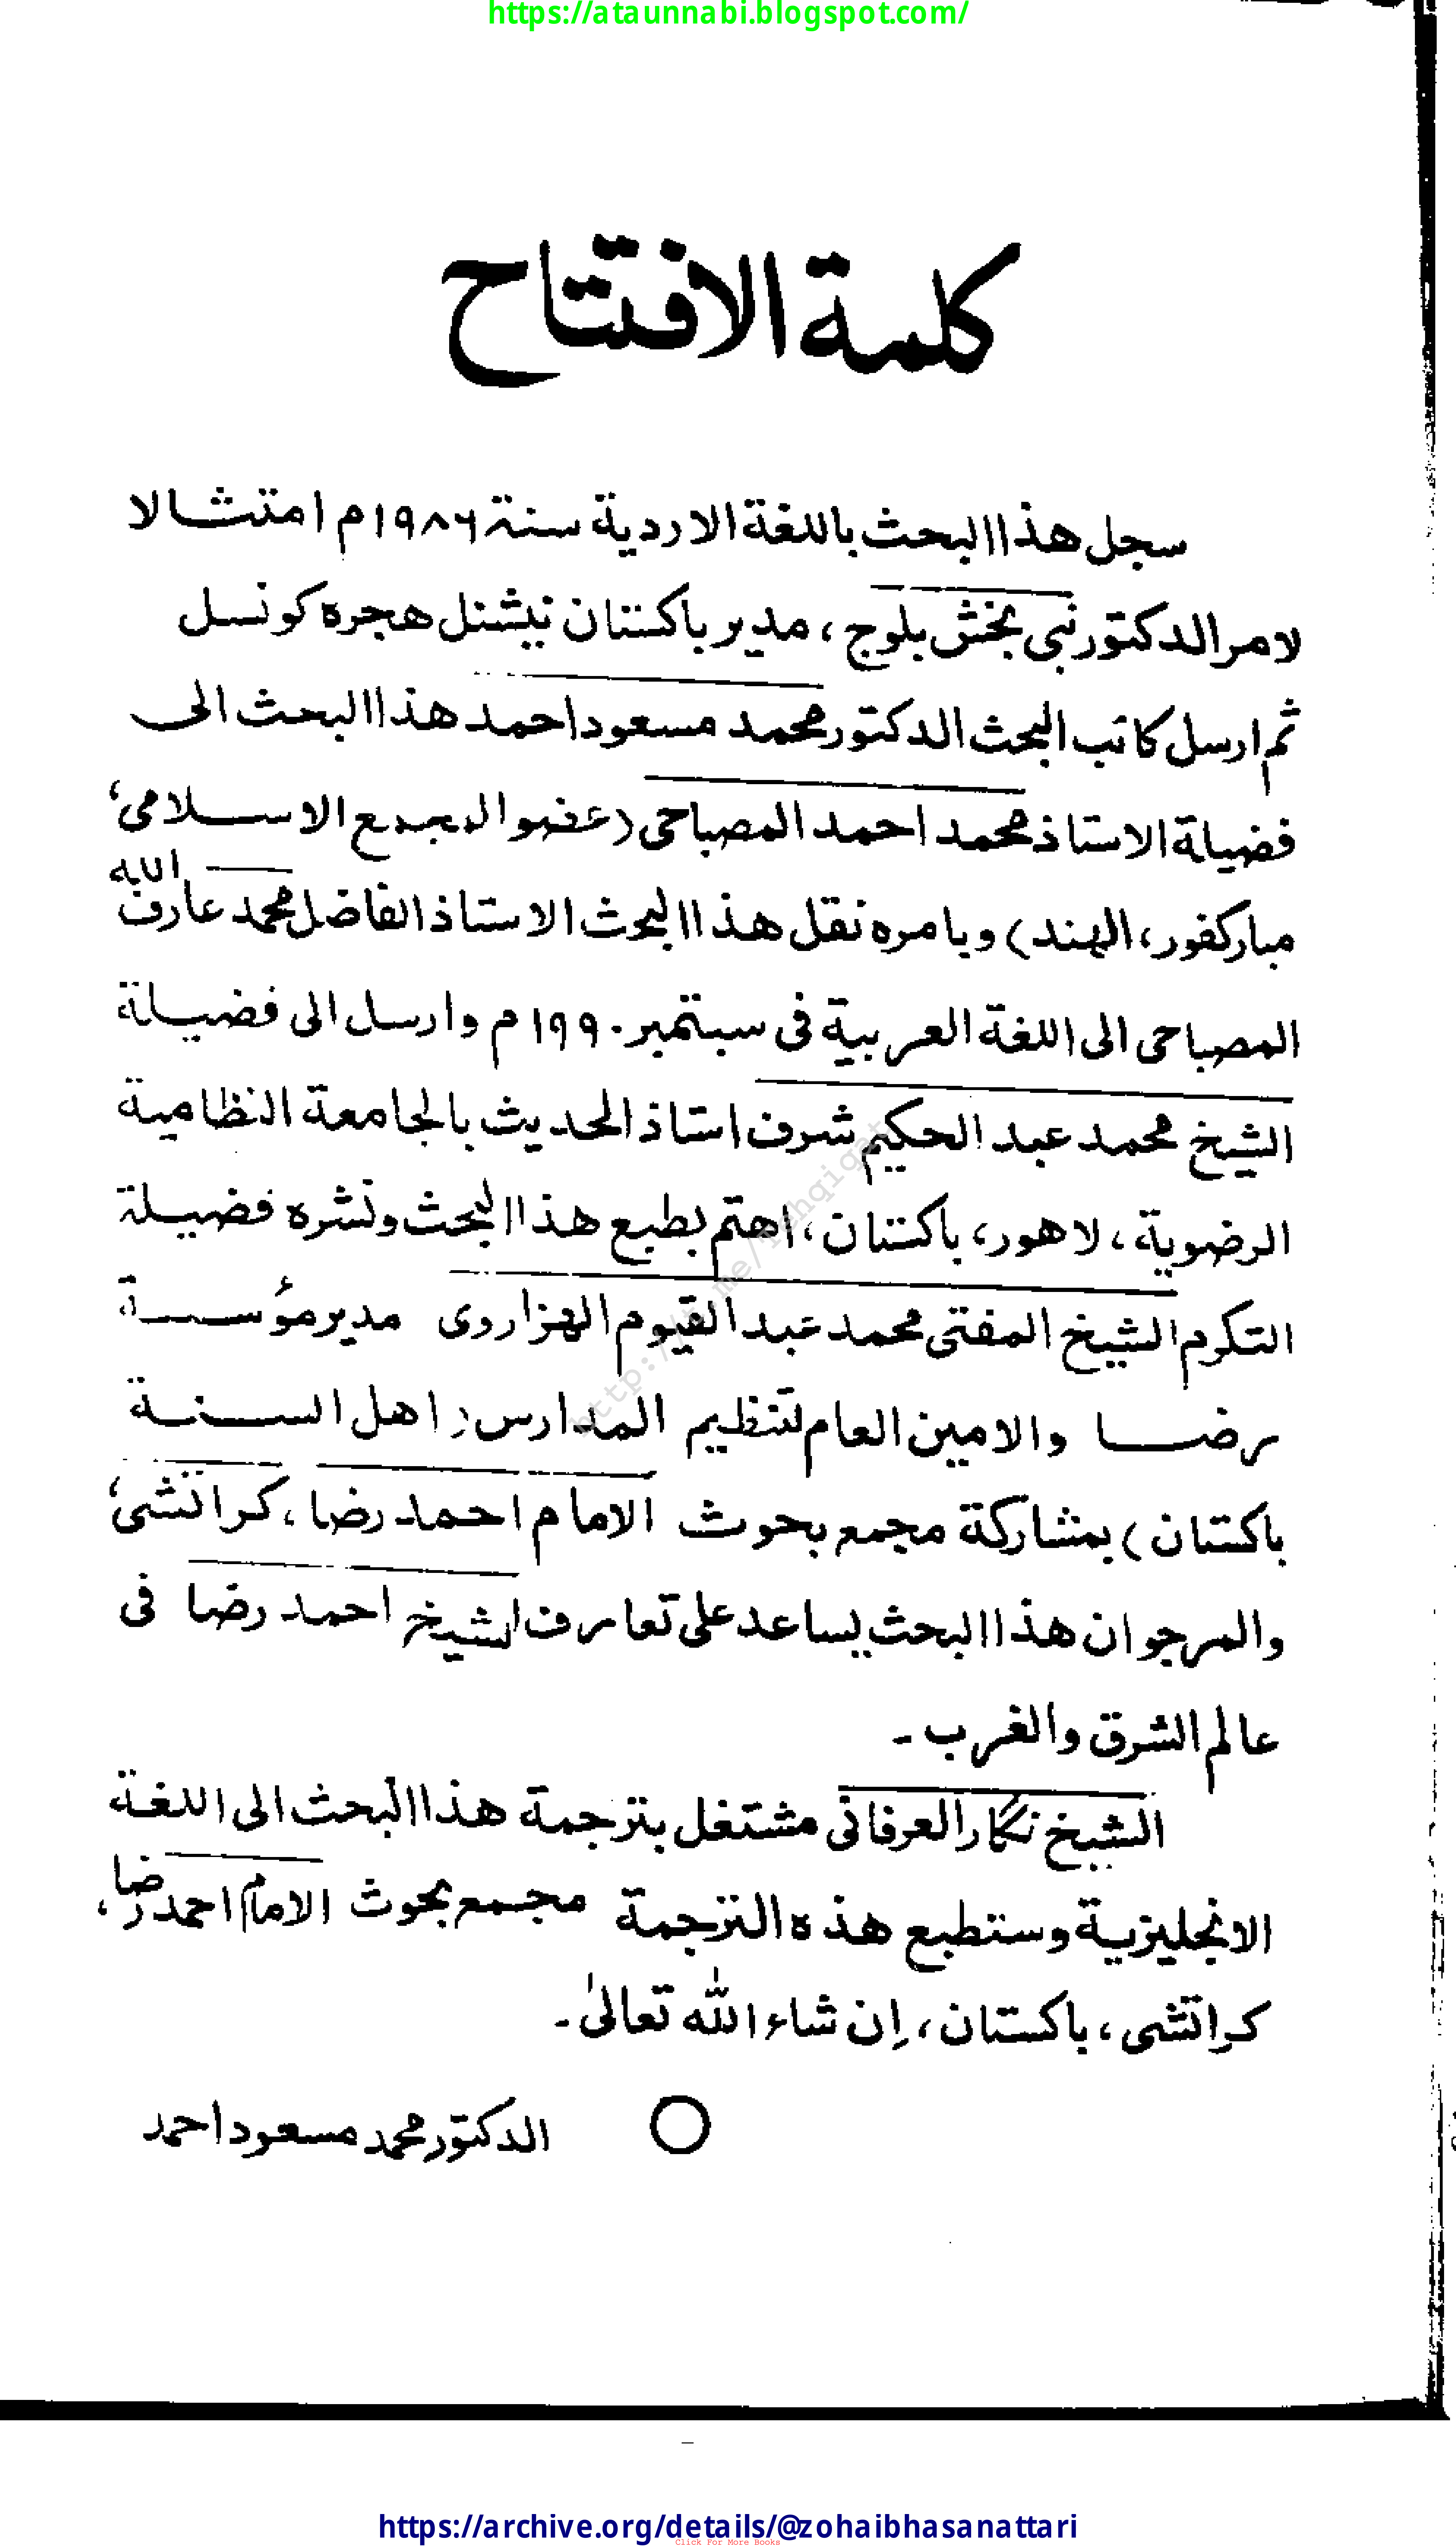 https://ataunnabi.blogspot.com/
كلمة الافتتاح
سجل هذا البحث باللغة الاردية سنة ١٩٨٦م امتثالا
لامر الدكتور نبی بخش بلوچ، مدير باكستان نيشنل هجره كونسل
ثم ارسل كاتب البحث الدكتور محمد مسعود احمد هذا البحث الى
فضيلة الاستاذ محمد احمد المصباحى (عضو المجمع الاسلامى،
مباركفور، الهند) وبامره نقل هذا البحث الاستاذ الفاضل محمد عارف الله
المصباحى الى اللغة العربية فى سبتمبر ١٩٩٠م وارسل الى فضيلة
الشيخ محمد عبد الحكيم شرف استاذ الحديث بالجامعة النظامية
الرضوية، لاهور، باكستان، اهتم بطبع هذا البحث ونشره فضيلة
التكرم الشيخ المفتى محمد عبد القيوم الهزاروى مدير مؤسسة
رضا والامين العام لتنظيم المدارس (اهل السنة
باكستان) بمشاركة مجمع بحوث الامام احمد رضا، كراتشى،
والمرجو ان هذا البحث يساعد على تعارف الشيخ احمد رضا فى
عالم الشرق والغرب ـ
الشيخ نگار العرفانى مشتغل بترجمة هذا البحث الى اللغة
الانجليزية وستطبع هذه الترجمة مجمع بحوث الامام احمد رضا،
كراتشى، باكستان، إن شاء الله تعالىٰ ـ
الدكتور محمد مسعود احمد
https://archive.org/details/@zohaibhasanattari
Click For More Books